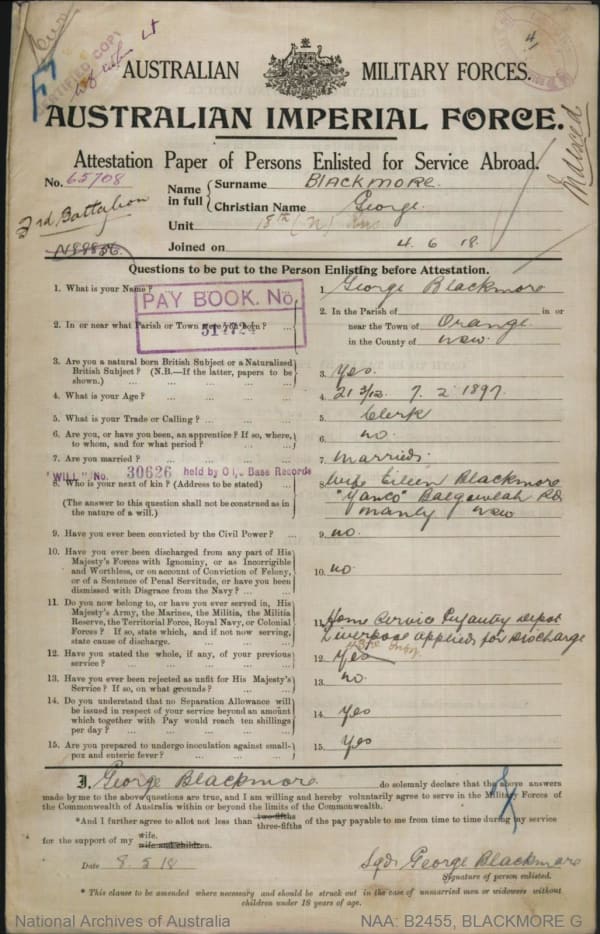 CERTIFIED COPY
4
AUSTRALIAN MILITARY FORCES.
AUSTRALIAN IMPERIAL FORCE.
Attestation Paper of Persons Enlisted for Service Abroad.
No. 65708
Name in full
Surname BLACKMORE.
Christian Name George.
3rd Battalion
Unit 18th (N)
Joined on 4. 6 18.
Questions to be put to the Person Enlisting before Attestation.
1. What is your Name? 1. George Blackmore
PAY BOOK. No.
2. In or near what Parish or Town were you born? ... 2. In the Parish of in or
near the Town of Orange
in the County of NSW.
3. Are you a natural born British Subject or a Naturalised
British Subject? (N.B.—If the latter, papers to be
shown.) ... 3. Yes.
4. What is your Age? ... 4. 21 3/12. 7. 2 1897.
5. What is your Trade or Calling? ... 5. Clerk
6. Are you, or have you been, an apprentice? If so, where,
to whom, and for what period? ... 6. no.
7. Are you married? ... 7. Married.
"WILL" No. 30626 held by O i/c Base Records
8. Who is your next of kin? (Address to be stated) ... 8. Wife Eileen Blackmore
"Yanco" Balgowlah Rd
Manly NSW
(The answer to this question shall not be construed as in
the nature of a will.)
9. Have you ever been convicted by the Civil Power? ... 9. no.
10. Have you ever been discharged from any part of His
Majesty's Forces with Ignominy, or as Incorrigible
and Worthless, or on account of Conviction of Felony,
or of a Sentence of Penal Servitude, or have you been
dismissed with Disgrace from the Navy? ... 10. no.
11. Do you now belong to, or have you ever served in, His
Majesty's Army, the Marines, the Militia, the Militia
Reserve, the Territorial Force, Royal Navy, or Colonial
Forces? If so, state which, and if not now serving,
state cause of discharge. ... 11. Home Service Infantry Depot
Liverpool applied for Discharge
12. Have you stated the whole, if any, of your previous
service? ... 12. yes
13. Have you ever been rejected as unfit for His Majesty's
Service? If so, on what grounds? ... 13. no.
14. Do you understand that no Separation Allowance will
be issued in respect of your service beyond an amount
which together with Pay would reach ten shillings
per day? ... 14. yes
15. Are you prepared to undergo inoculation against small-
pox and enteric fever? ... 15. yes
I, George Blackmore do solemnly declare that the above answers
made by me to the above questions are true, and I am willing and hereby voluntarily agree to serve in the Military Forces of
the Commonwealth of Australia within or beyond the limits of the Commonwealth.
*And I further agree to allot not less than two-fifths three-fifths of the pay payable to me from time to time during my service
for the support of my wife. wife and children.
Date 8. 5 18
Sgd. George Blackmore
Signature of person enlisted.
* This clause to be amended where necessary and should be struck out in the case of unmarried men or widowers without
children under 18 years of age.
National Archives of Australia NAA: B2455, BLACKMORE G